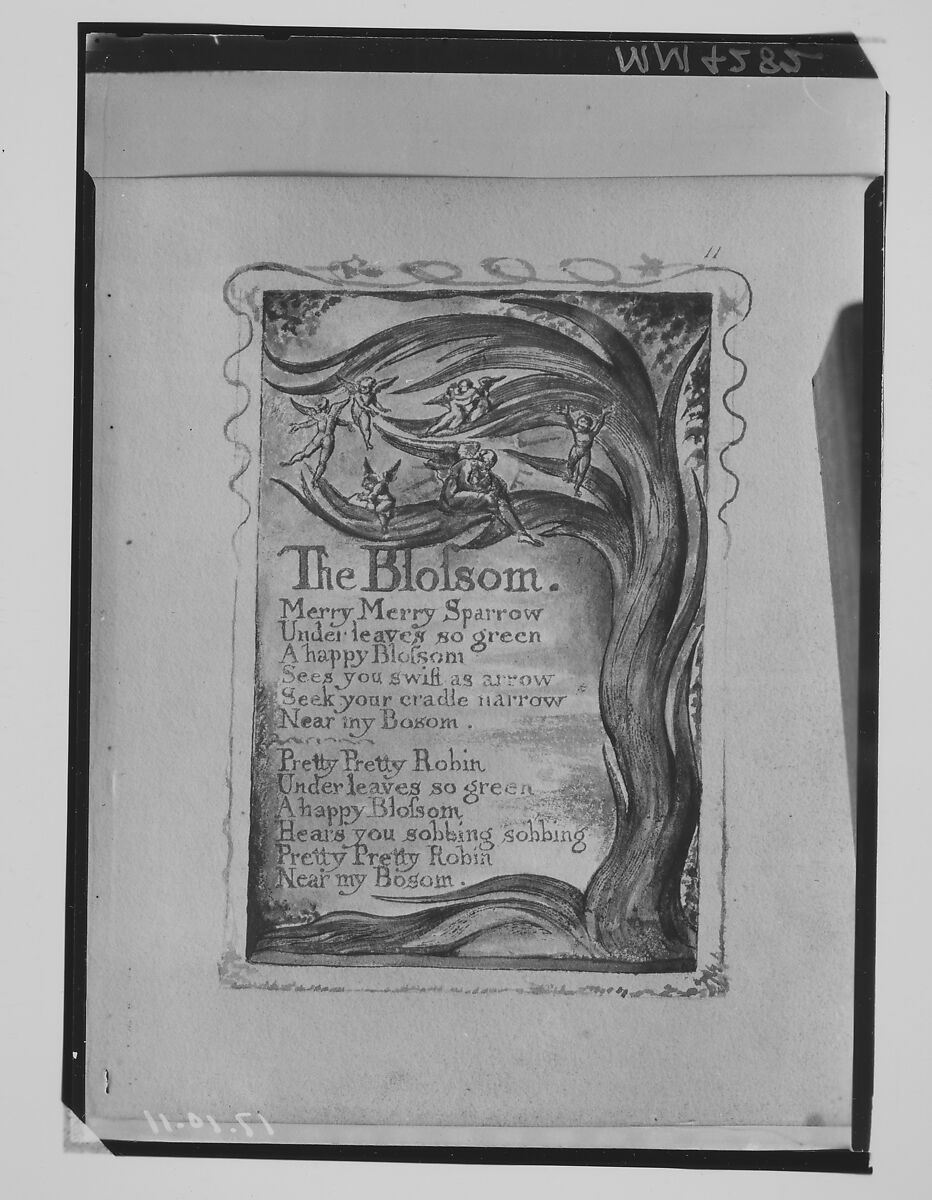 MM4282
11
The Bloſsom.
Merry Merry Sparrow
Under leaves so green
A happy Bloſsom
Sees you swift as arrow
Seek your cradle narrow
Near my Bosom.
Pretty Pretty Robin
Under leaves so green
A happy Bloſsom
Hears you sobbing sobbing
Pretty Pretty Robin
Near my Bosom.
17.10.11